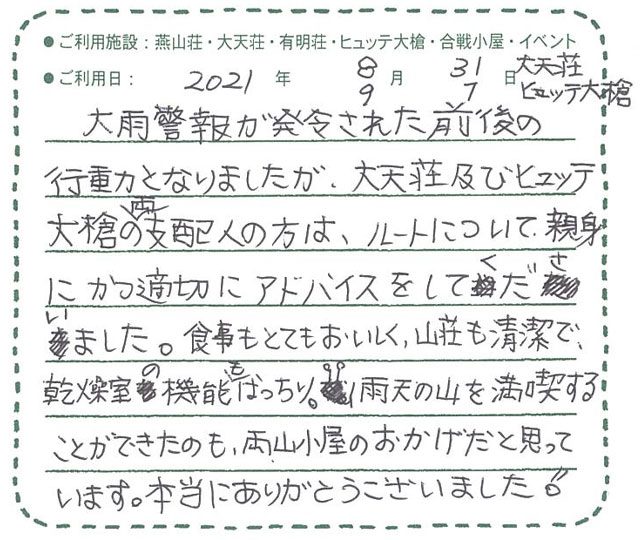 ●ご利用施設：燕山荘・大天荘・有明荘・ヒュッテ大槍・合戦小屋・イベント
●ご利用日： 2021 年 8 月 31 日 大天荘
9 7 ヒュッテ大槍
大雨警報が発令された前後の
行動となりましたが、大天荘及びヒュッテ
大槍の両支配人の方は、ルートについて親身
にかつ適切にアドバイスをしてくださ
いました。食事もとてもおいしく、山荘も清潔で、
乾燥室の機能もばっちり。雨天の山を満喫する
ことができたのも、両山小屋のおかげだと思って
います。本当にありがとうございました